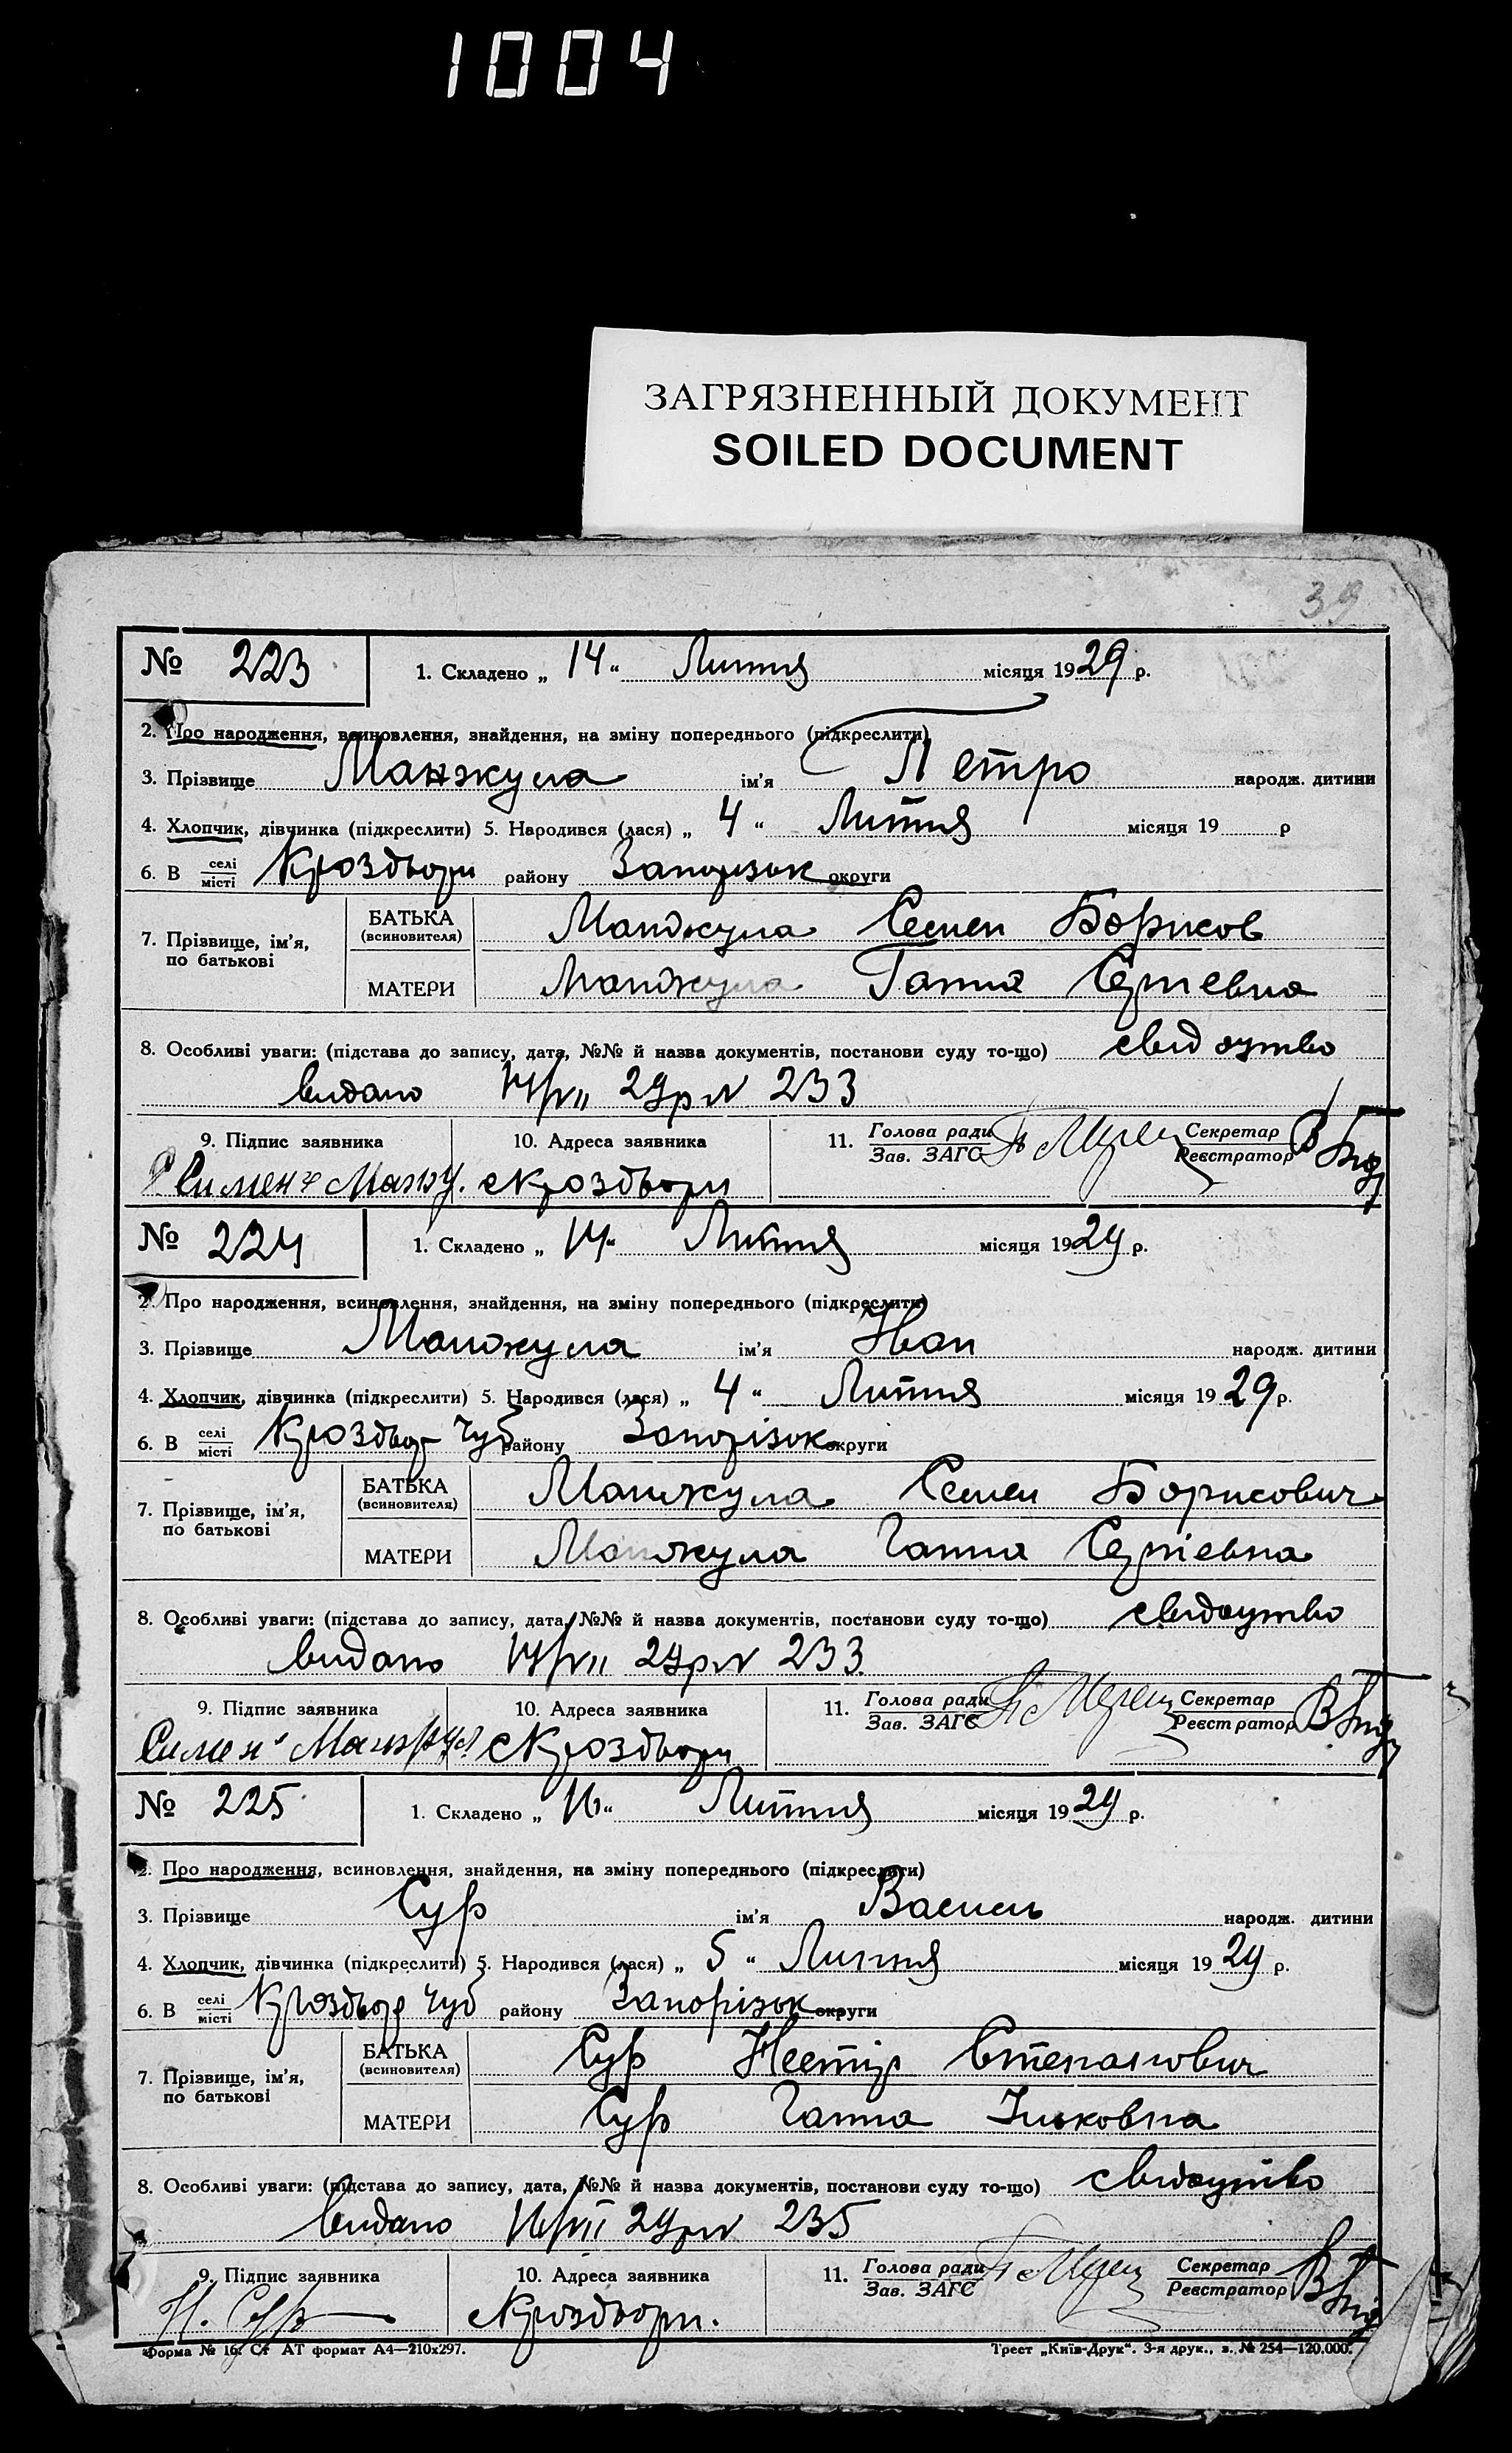 1004
ЗАГРЯЗНЕННЫЙ ДОКУМЕНТ
SOILED DOCUMENT
39
№ 223 1. Складено „ 14 “ Липня місяця 1929 р.
2. Про народження, всиновлення, знайдення, на зміну попереднього (підкреслити)
3. Прізвище Манжула ім'я Петро народж. дитини
4. Хлопчик, дівчинка (підкреслити) 5. Народився (лася) „ 4 “ Липня місяця 19 р
6. В селі місті району Запорізьк округи
7. Прізвище, ім'я, по батькові БАТЬКА (всиновителя) Манджула Семен Борисов
МАТЕРИ Манджула Ганна Сергіевна
8. Особливі уваги: (підстава до запису, дата, №№ й назва документів, постанови суду то-що) свідоцтво
видано 14/VII 29 р N 233
9. Підпис заявника 10. Адреса заявника 11. Голова ради Зав. ЗАГС Секретар Реєстратор
№ 224 1. Складено „ 14 “ Липня місяця 1929 р.
2. Про народження, всиновлення, знайдення, на зміну попереднього (підкреслити)
3. Прізвище Манджула ім'я Иван народж. дитини
4. Хлопчик, дівчинка (підкреслити) 5. Народився (лася) „ 4 “ Липня місяця 1929 р.
6. В селі місті Чуб району Запорізьк округи
7. Прізвище, ім'я, по батькові БАТЬКА (всиновителя) Манжула Семен Борисович
МАТЕРИ Манжула Ганна Сергіевна
8. Особливі уваги: (підстава до запису, дата, №№ й назва документів, постанови суду то-що) свідоцтво
видано 14/VII 29 р N 233
9. Підпис заявника 10. Адреса заявника 11. Голова ради Зав. ЗАГС Секретар Реєстратор
№ 225 1. Складено „ 16 “ Липня місяця 1929 р.
2. Про народження, всиновлення, знайдення, на зміну попереднього (підкреслити)
3. Прізвище Сур ім'я Василь народж. дитини
4. Хлопчик, дівчинка (підкреслити) 5. Народився (лася) „ 5 “ Липня місяця 1929 р.
6. В селі місті Чуб району Запорізьк округи
7. Прізвище, ім'я, по батькові БАТЬКА (всиновителя) Сур Нестір Степанович
МАТЕРИ Сур Ганна Ильковна
8. Особливі уваги: (підстава до запису, дата, №№ й назва документів, постанови суду то-що) свідоцтво
видано 16/VII 29 р N 235
9. Підпис заявника 10. Адреса заявника 11. Голова ради Зав. ЗАГС Секретар Реєстратор
Н. Сур
Форма № 16. Ст АТ формат А4—210х297. Трест „Київ-Друк“. 3-я друк., з. № 254—120.000.